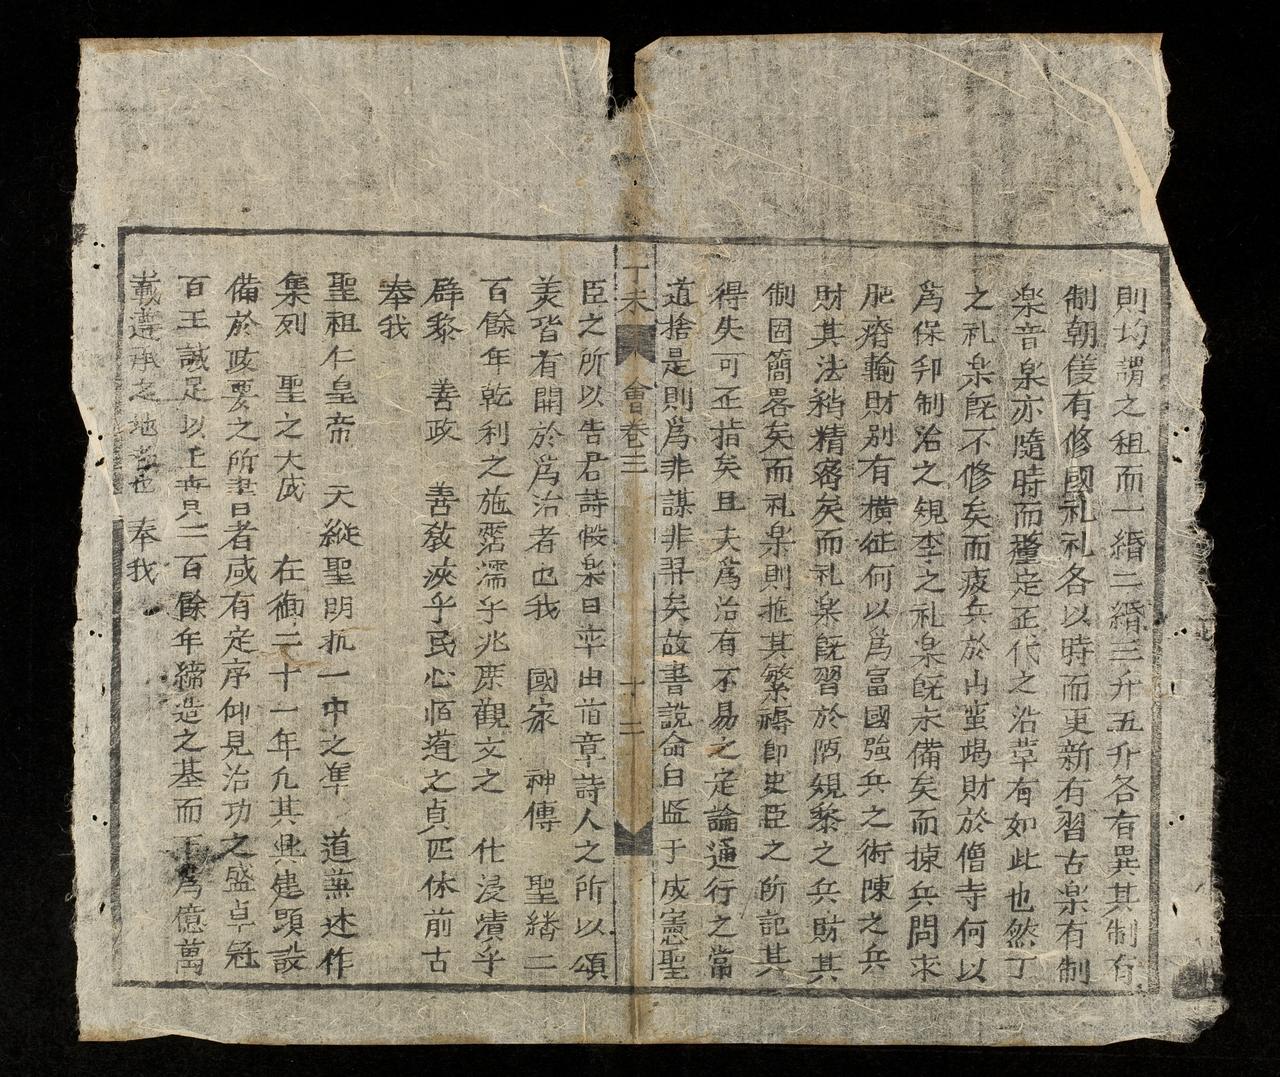 則均謂之租而一緡二緡三升五升各有異其制有
制朝儀有修國礼礼各以時而更新有習古楽有制
楽音楽亦随時而釐定正代之沿革有如此也然丁
之礼楽既不修矣而疲兵於山蛮竭財於僧寺何以
為保邦制治之規李之礼楽既未備矣而揀兵問求
肥瘠輸財別有横征何以為富國強兵之術陳之兵
財其法稍精密矣而礼楽既習於陋規黎之兵財其
制固簡畧矣而礼楽則摭其繁褥即史臣之所記其
得失可正指矣且夫為治有不易之定論通行之常
道捨是則為非謀非羿矣故書說命曰監于成憲聖
丁未 會卷三 十二
臣之所以告君詩假楽曰率由旧章詩人之所以頌
美皆有開於為治者也我 國家 神傳 聖緒二
百餘年乾利之施霑濡乎兆庶觀文之 仕浸漬乎
群黎 善政 善敎浹乎民心恒道之貞匹休前古
奉我
聖祖仁皇帝 天縱聖明執一中之準 道兼述作
集列 聖之大成 在御二十一年凡其典建頭設
備於政要之所書者咸有定序仰見治功之盛卓冠
百王誠足以 二百餘年締造之基而下為億萬
載遵承之地者也 奉我